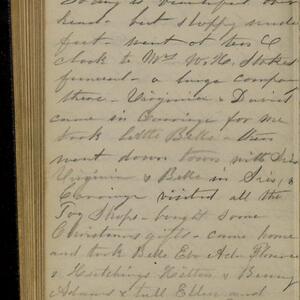 Today is beautiful over
head - but sloppy under
feet - went at ten O
clock to Mrs W. H. Stokes
funeral - a large company
there. Virginia & David
came in Carriage for me
took little Belle - then
went down town with
Virginia & Belle in
Carriage visited all the
Toy Shops - bought some
Christmas gifts - came home
and took Belle Eber Ada Florence
& Hutchings Hilton & Benny
Adams & tall Ellen and